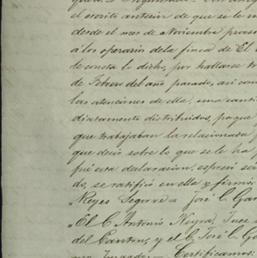 el escrito anterior de que se le
desde el mes de Noviembre
á los operarios de la finca de El
de consta lo dicho, por hallarse
de Febrero del año pasado, así como
las atenciones de ella, una
diatamente distribuidos, porque
que trabajaban la relacionada
que decir sobre lo que se le ha
fué esta declaracion, espresó
do, se ratificó en ella y firmó
Reyes Segovia = José C.
"El C. Antonio Neyra, Juez
del Canton, y el C. José C.
Certificamos: